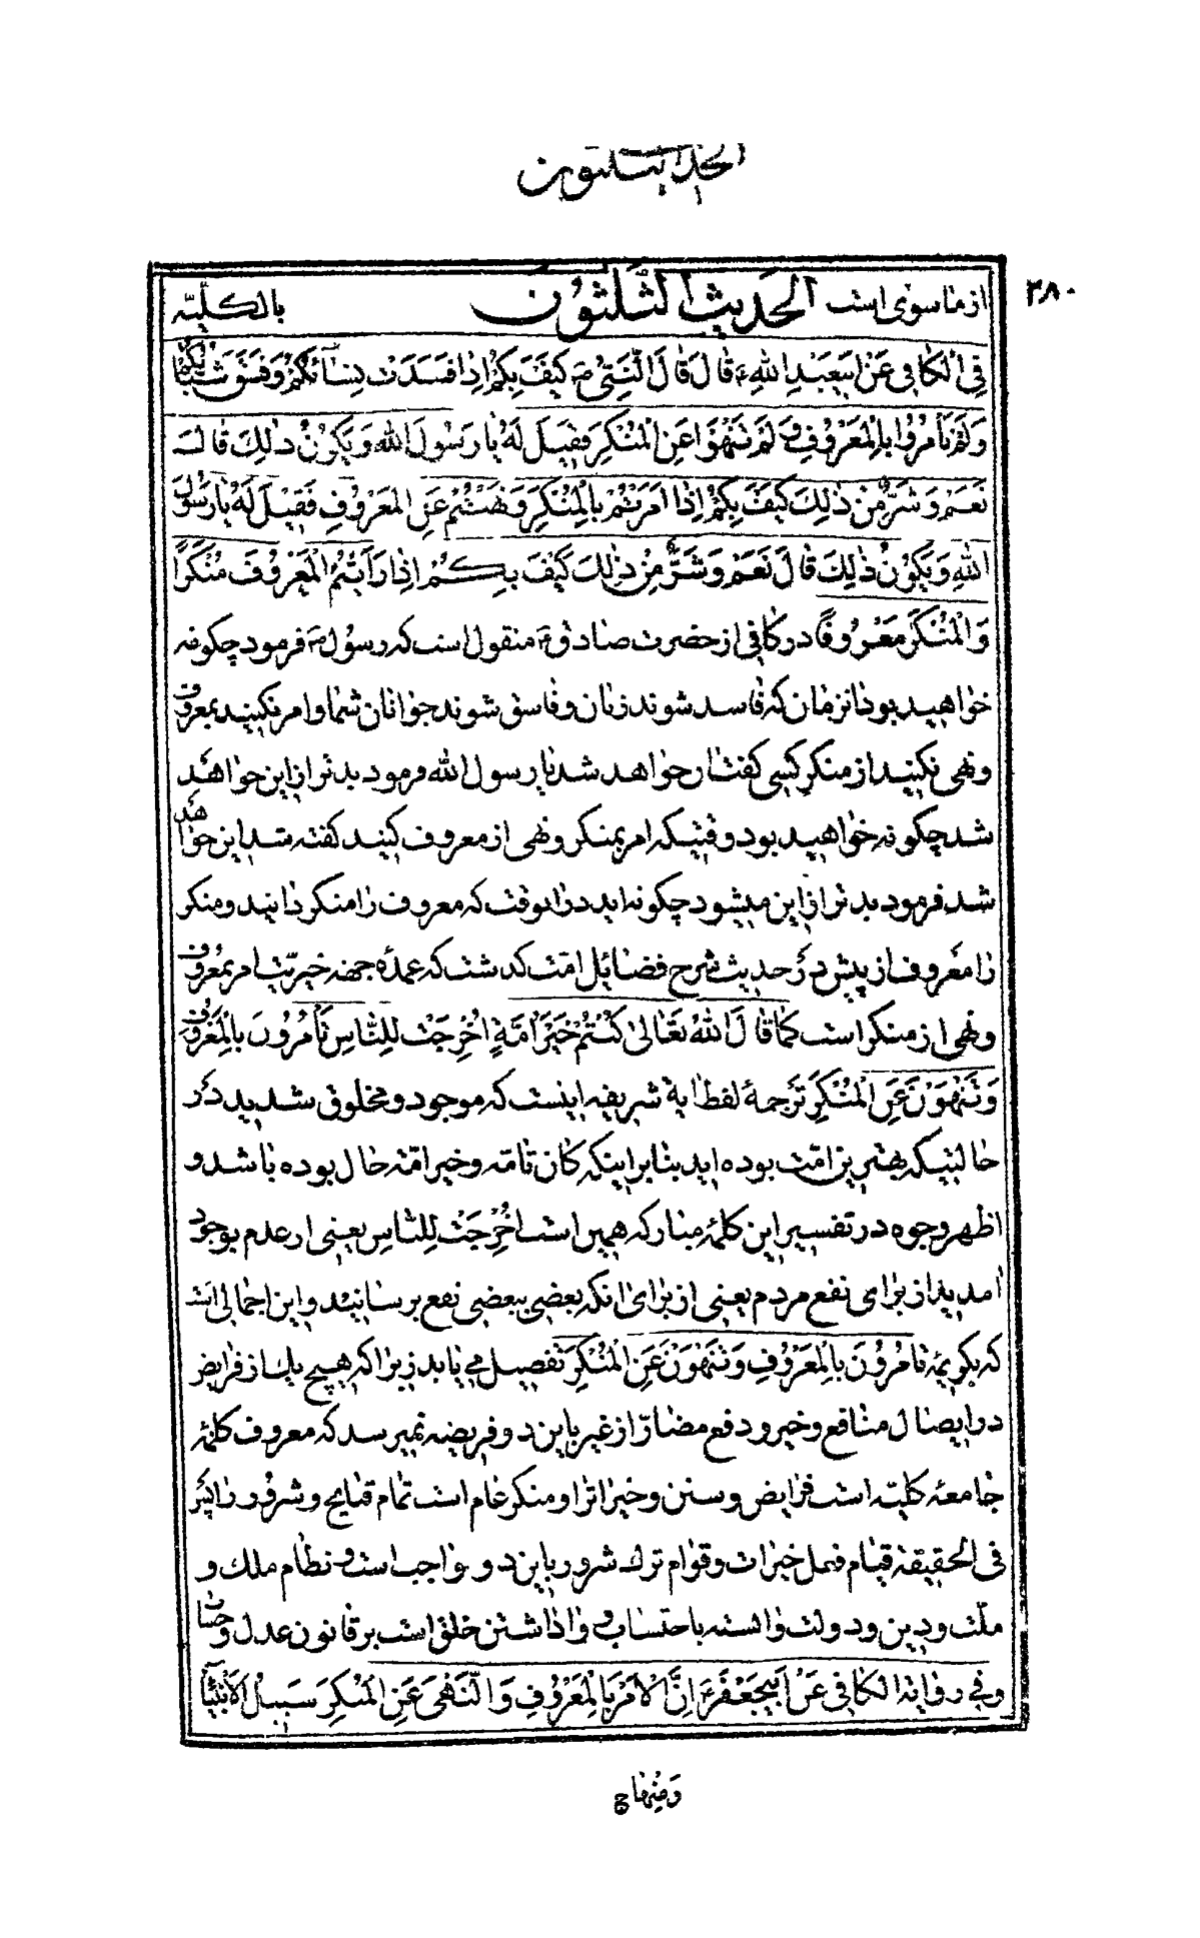 الحدیث الثلثون
۲۸۰
از ماسوی است الحَدیث الثّلثون بالکلّیّه
فِی الْکافِی عَنْ اَبیعَبْدِ اللهِ ع قالَ قالَ النَّبِیُّ ص کَیْفَ بِکُمْ اِذا فَسَدَتْ نِسآئُکُمْ وَ فَسَقَ شَبابُکُمْ
وَ لَمْ تَأمُرُوا بِالْمَعْرُوفِ وَ لَمْ تَنْهَوْا عَنِ الْمُنْکَرِ فَقیلَ لَهُ یا رَسُولَ اللهِ وَ یَکُونُ ذٰلِکَ قالَ
نَعَمْ وَ شَرٌّ مِنْ ذٰلِکَ کَیْفَ بِکُمْ اِذا اَمَرْتُمْ بِالْمُنْکَرِ وَ نَهَیْتُمْ عَنِ المَعْرُوفِ فَقیلَ لَهُ یا رَسُولَ
اللهِ وَ یَکُونُ ذٰلِکَ قالَ نَعَمْ وَ شَرٌّ مِنْ ذٰلِکَ کَیْفَ بِکُمْ اِذا رَاَیْتُمُ الْمَعْرُوفَ مُنْکَرًا
وَ الْمُنْکَرَ مَعْرُوفًا در کافی از حضرت صادق ع منقول است که رسول ص فرمود چکونه
خواهید بود دانزمان که فاسد شوند زنان و فاسق شوند جوانان شما و امر نکنید بمعروف
و نهی نکنید از منکر کسی کفت ار خواهد شد یا رسول الله فرمود بدتر از این خواهد
شد چکونه خواهید بود وقتیکه امر بمنکر و نهی از معروف کنید کفته شد این خواهد
شد فرمود بدتر از این میشود چکونه اید درانوقت که معروف را منکر دانید و منکر
را معروف از پیش در حدیث شرح فضایل امّت کذشت که عمدهٔ جهة خیریّت امر بمعروف
و نهی از منکر است کَما قالَ اللهُ تَعالیٰ کُنْتُمْ خَیْرَ اُمَّةٍ اُخْرِجَتْ لِلنّاسِ تَأمُرُونَ بِالْمَعْرُوفِ
وَ تَنْهَوْنَ عَنِ الْمُنْکَرِ ترجمهٔ لفظ ایهٔ شریفه اینست که موجود و مخلوق شدید در
حالتیکه بهترین امّت بوده اید بنابراینکه کان تامّه و خیر امّة حال بوده باشد و
اظهر وجوه در تفسیر این کلمهٔ مبارکه همین است اُخْرِجَتْ لِلنّاسِ یعنی از عدم بوجود
امدید از برای نفع مردم یعنی از برای انکه بعضی ببعضی نفع برسانید و این اجمالی است
که بکریمهٔ تامُرُونَ بِالْمَعْرُوفِ وَ تَنْهَوْنَ عَنِ الْمُنْکَرِ تفصیل می یابد زیرا که هیچ یک از فرایض
در ایصال منافع و خیر و دفع مضارّ از غیر باین دو فریضه نمیرسد که معروف کلمهٔ
جامعهٔ کلیّه است فرایض و سنن و خیرات را و منکر عام است تمام قبایح و شرور را پس
فی الحقیقة قیام فعل خیرات و قوام ترک شرور باین دو واجب است و نظام ملک و
ملّت و دین و دولت وابسته باحتساب و واداشتن خلق است بر قانون عدل و حساب
و فی روایة الکافی عَنْ اَبیجَعْفَرَ ع اِنَّ الْاَمْرَ بِالْمَعْرُوفِ وَ النَّهْیَ عَنِ الْمُنْکَرِ سَبیلُ الاَنْبِیآءِ
وَ مِنْهاج